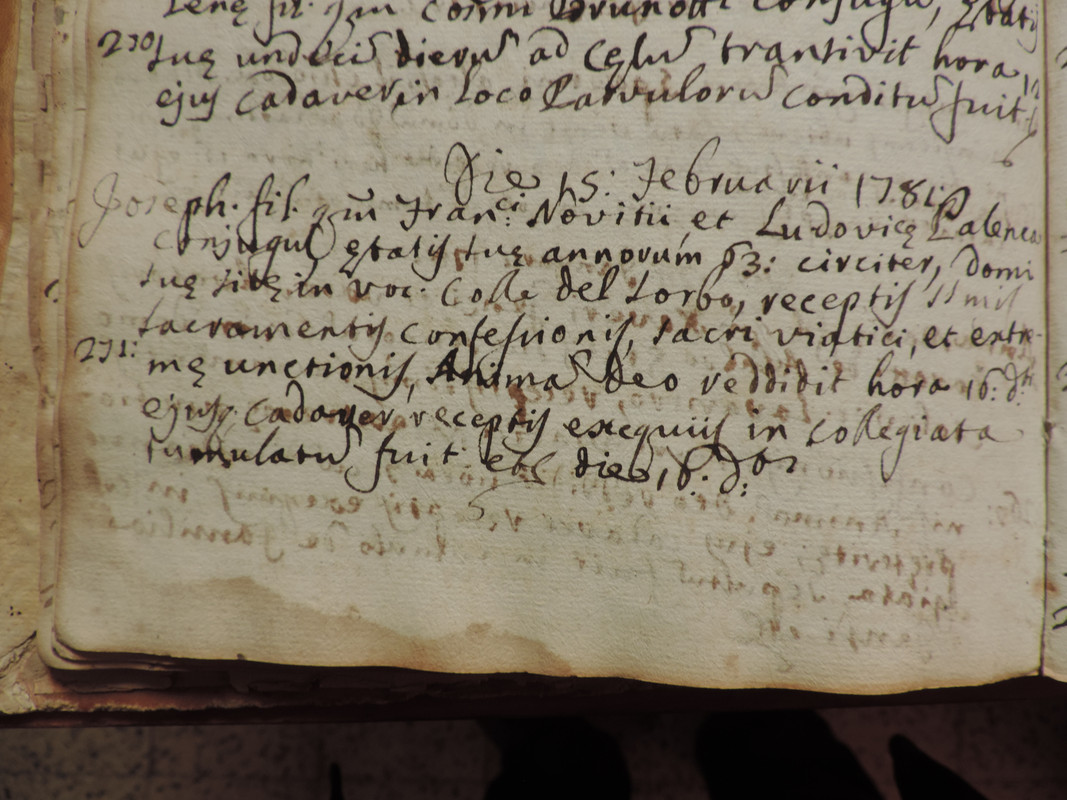 fil. qm Brunotti Conjugu,
230 suę undeciū dierū ad Cęlū transivit hora
ejus Cadaver in loco Parvulorū Conditū fuit
Die 15: Februarii 1781
Joseph. fil. qm Fran.ci Novitii et Ludovicę Palenca
Conjugū ętatis suę annorum 63: circiter, Domi
suę sitę in voc. Colle del sorbo, receptis
sacramentis confessionis, sacri viatici, et extre-
271: mę unctionis, Animā Deo reddidit hora 16. dti
ejusq. Cadaver receptis exequiis in Collegiata
tumulatū fuit die 16. d.